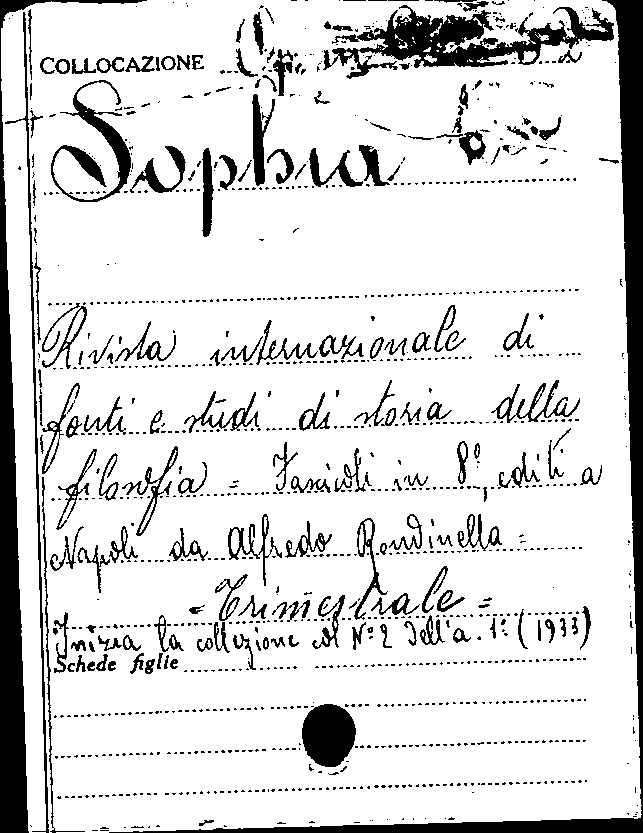 COLLOCAZIONE
Sophia
Rivista internazionale di
fonti e studi di storia della
filosofia = Fascicoli in 8º, editi a
Napoli da Alfredo Rondinella =
= Trimestrale =
Inizia la collezione col Nº 2 dell'a. 1º (1933)
Schede figlie